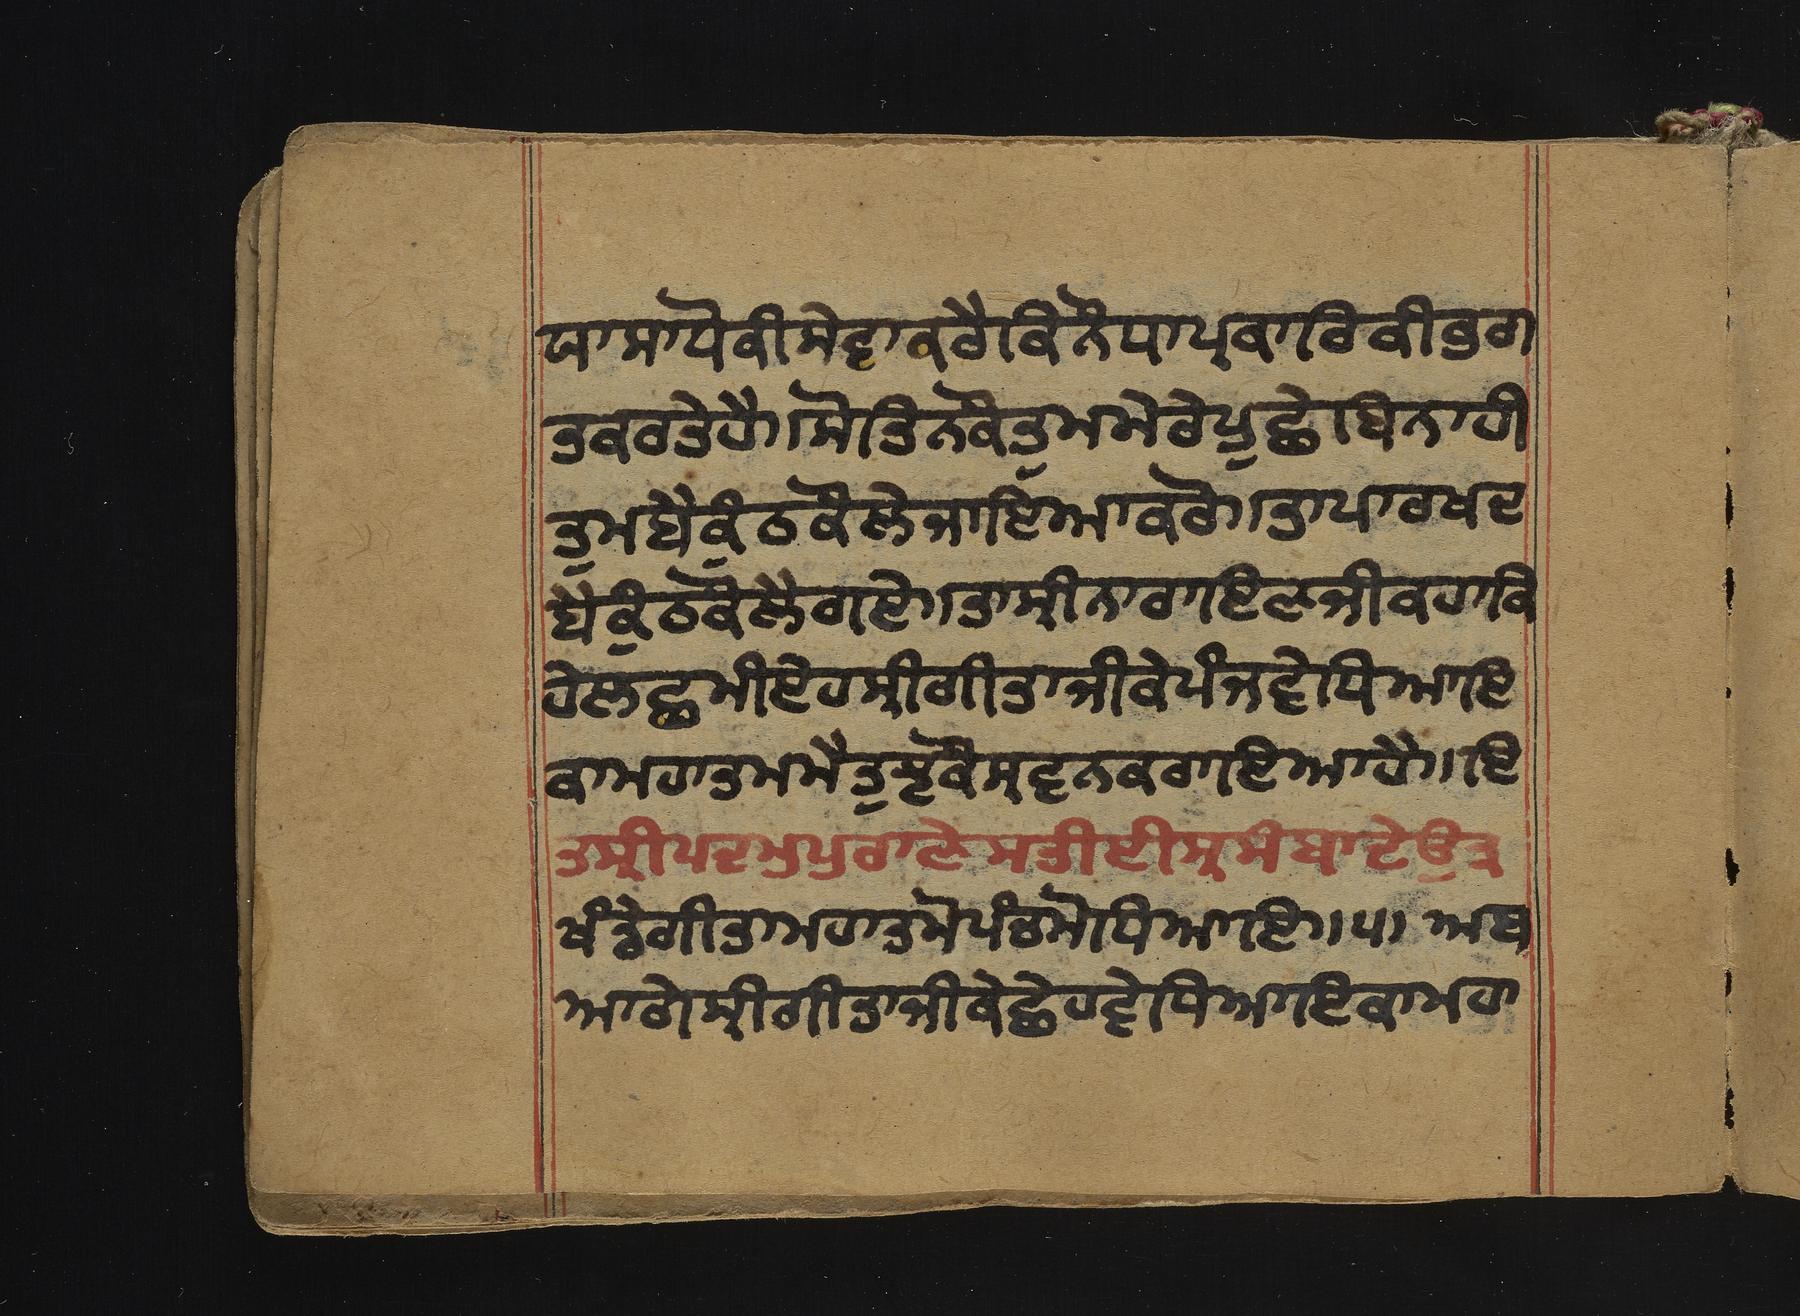 ਯਾਸਾਧੋਕੀਸੇਵਾਕਰੈਕਿਨੌਧਾਪ੍ਰਕਾਰਿਕੀਭਗ
ਤਕਰਤੇਹੈ।ਸੋਤਿਨਕੌਤੁਮਮੇਰੇਪੁਛੇਬਿਨਾਹੀ
ਤੁਮਬੈਕੁੰਠਕੌਲੇਜਾਇਆਕਰੋ।ਤਾਪਾਰਖਦ
ਬੈਕੁੰਠਕੌਲੈਗਏ।ਤਾਸ੍ਰੀਨਾਰਾਇਣਜੀਕਹਾਕਿ
ਹੇਲਛਮੀਏਹਸ੍ਰੀਗੀਤਾਜੀਕੇਪੰਜਵੇਧਿਆਇ
ਕਾਮਹਾਤਮਮੈਤੁਝਕੌਸ੍ਰਵਨਕਰਾਇਆਹੈ॥ਇ
ਤਸ੍ਰੀਪਦਮਪੁਰਾਣੇਸਤੀਈਸ੍ਰਸੰਬਾਦੇਉਤ੍ਰ
ਖੰਡੇਗੀਤਾਮਹਾਤਮੋਪੰਚਮੋਧਿਆਇ॥੫॥ ਅਬ
ਆਗੇਸ੍ਰੀਗੀਤਾਜੀਕੇਛੇਹਵੇਧਿਆਇਕਾਮਹਾ